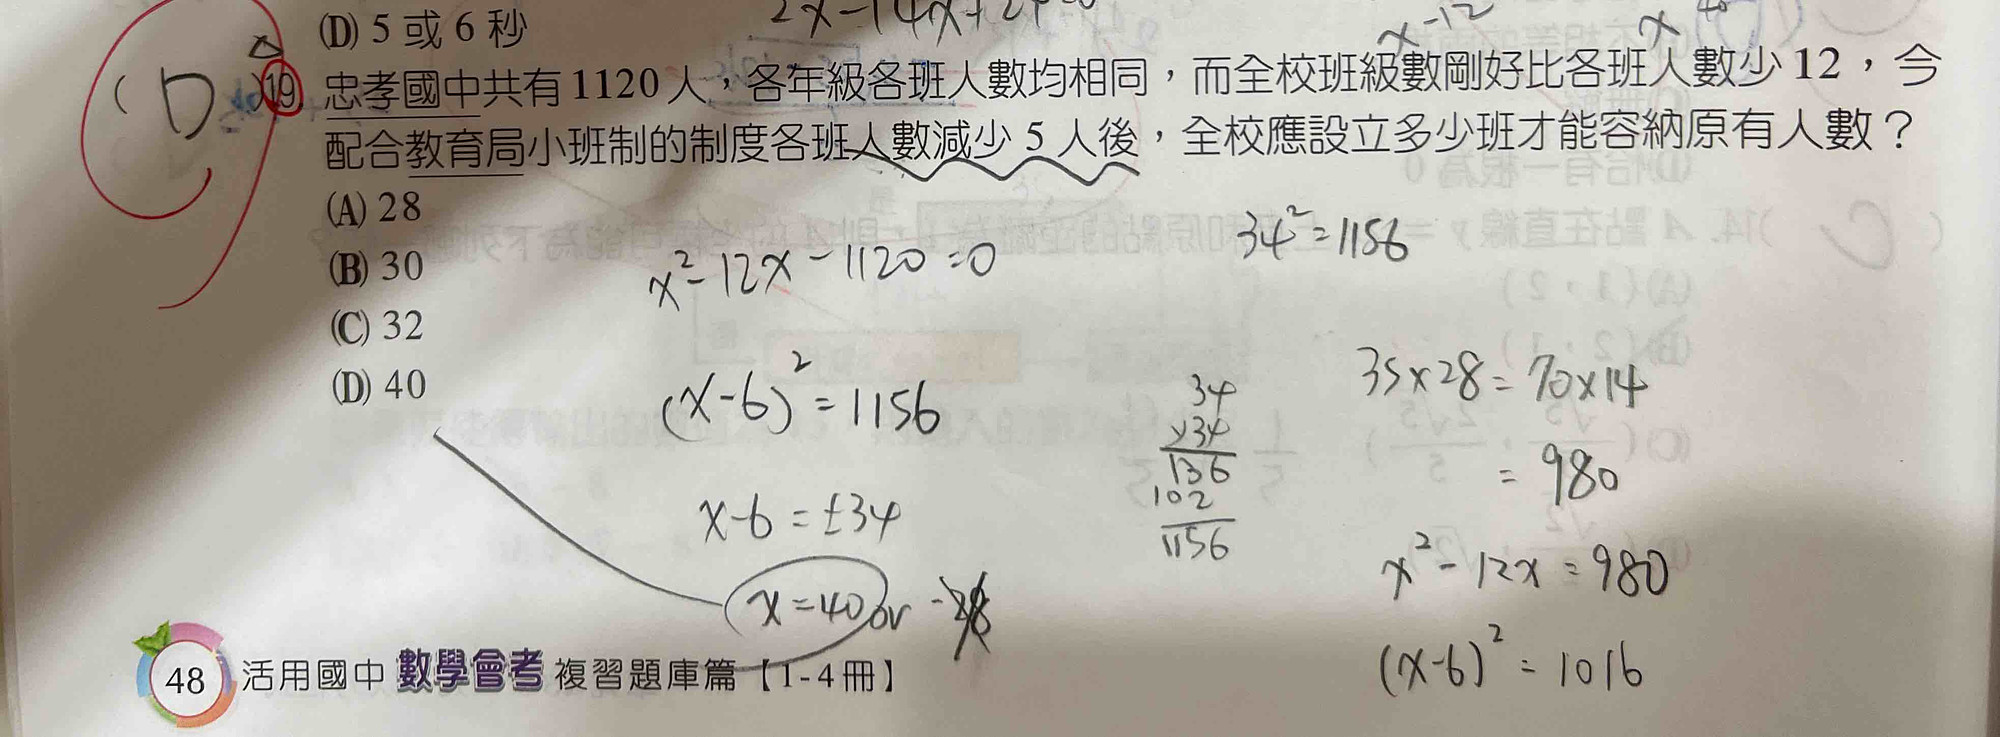 (D) 5 或 6 秒
x-12
x
( D )19. 忠孝國中共有 1120 人，各年級各班人數均相同，而全校班級數剛好比各班人數少 12，今
配合教育局小班制的制度各班人數減少 5 人後，全校應設立多少班才能容納原有人數？
(A) 28
(B) 30
(C) 32
(D) 40
x²-12x-1120=0
(x-6)²=1156
x-6=±34
x=40 or -28
34²=1156
34
x34
136
102
1156
35x28=70x14
=980
x²-12x=980
(x-6)²=1016
48 活用國中 數學會考 複習題庫篇【1-4冊】